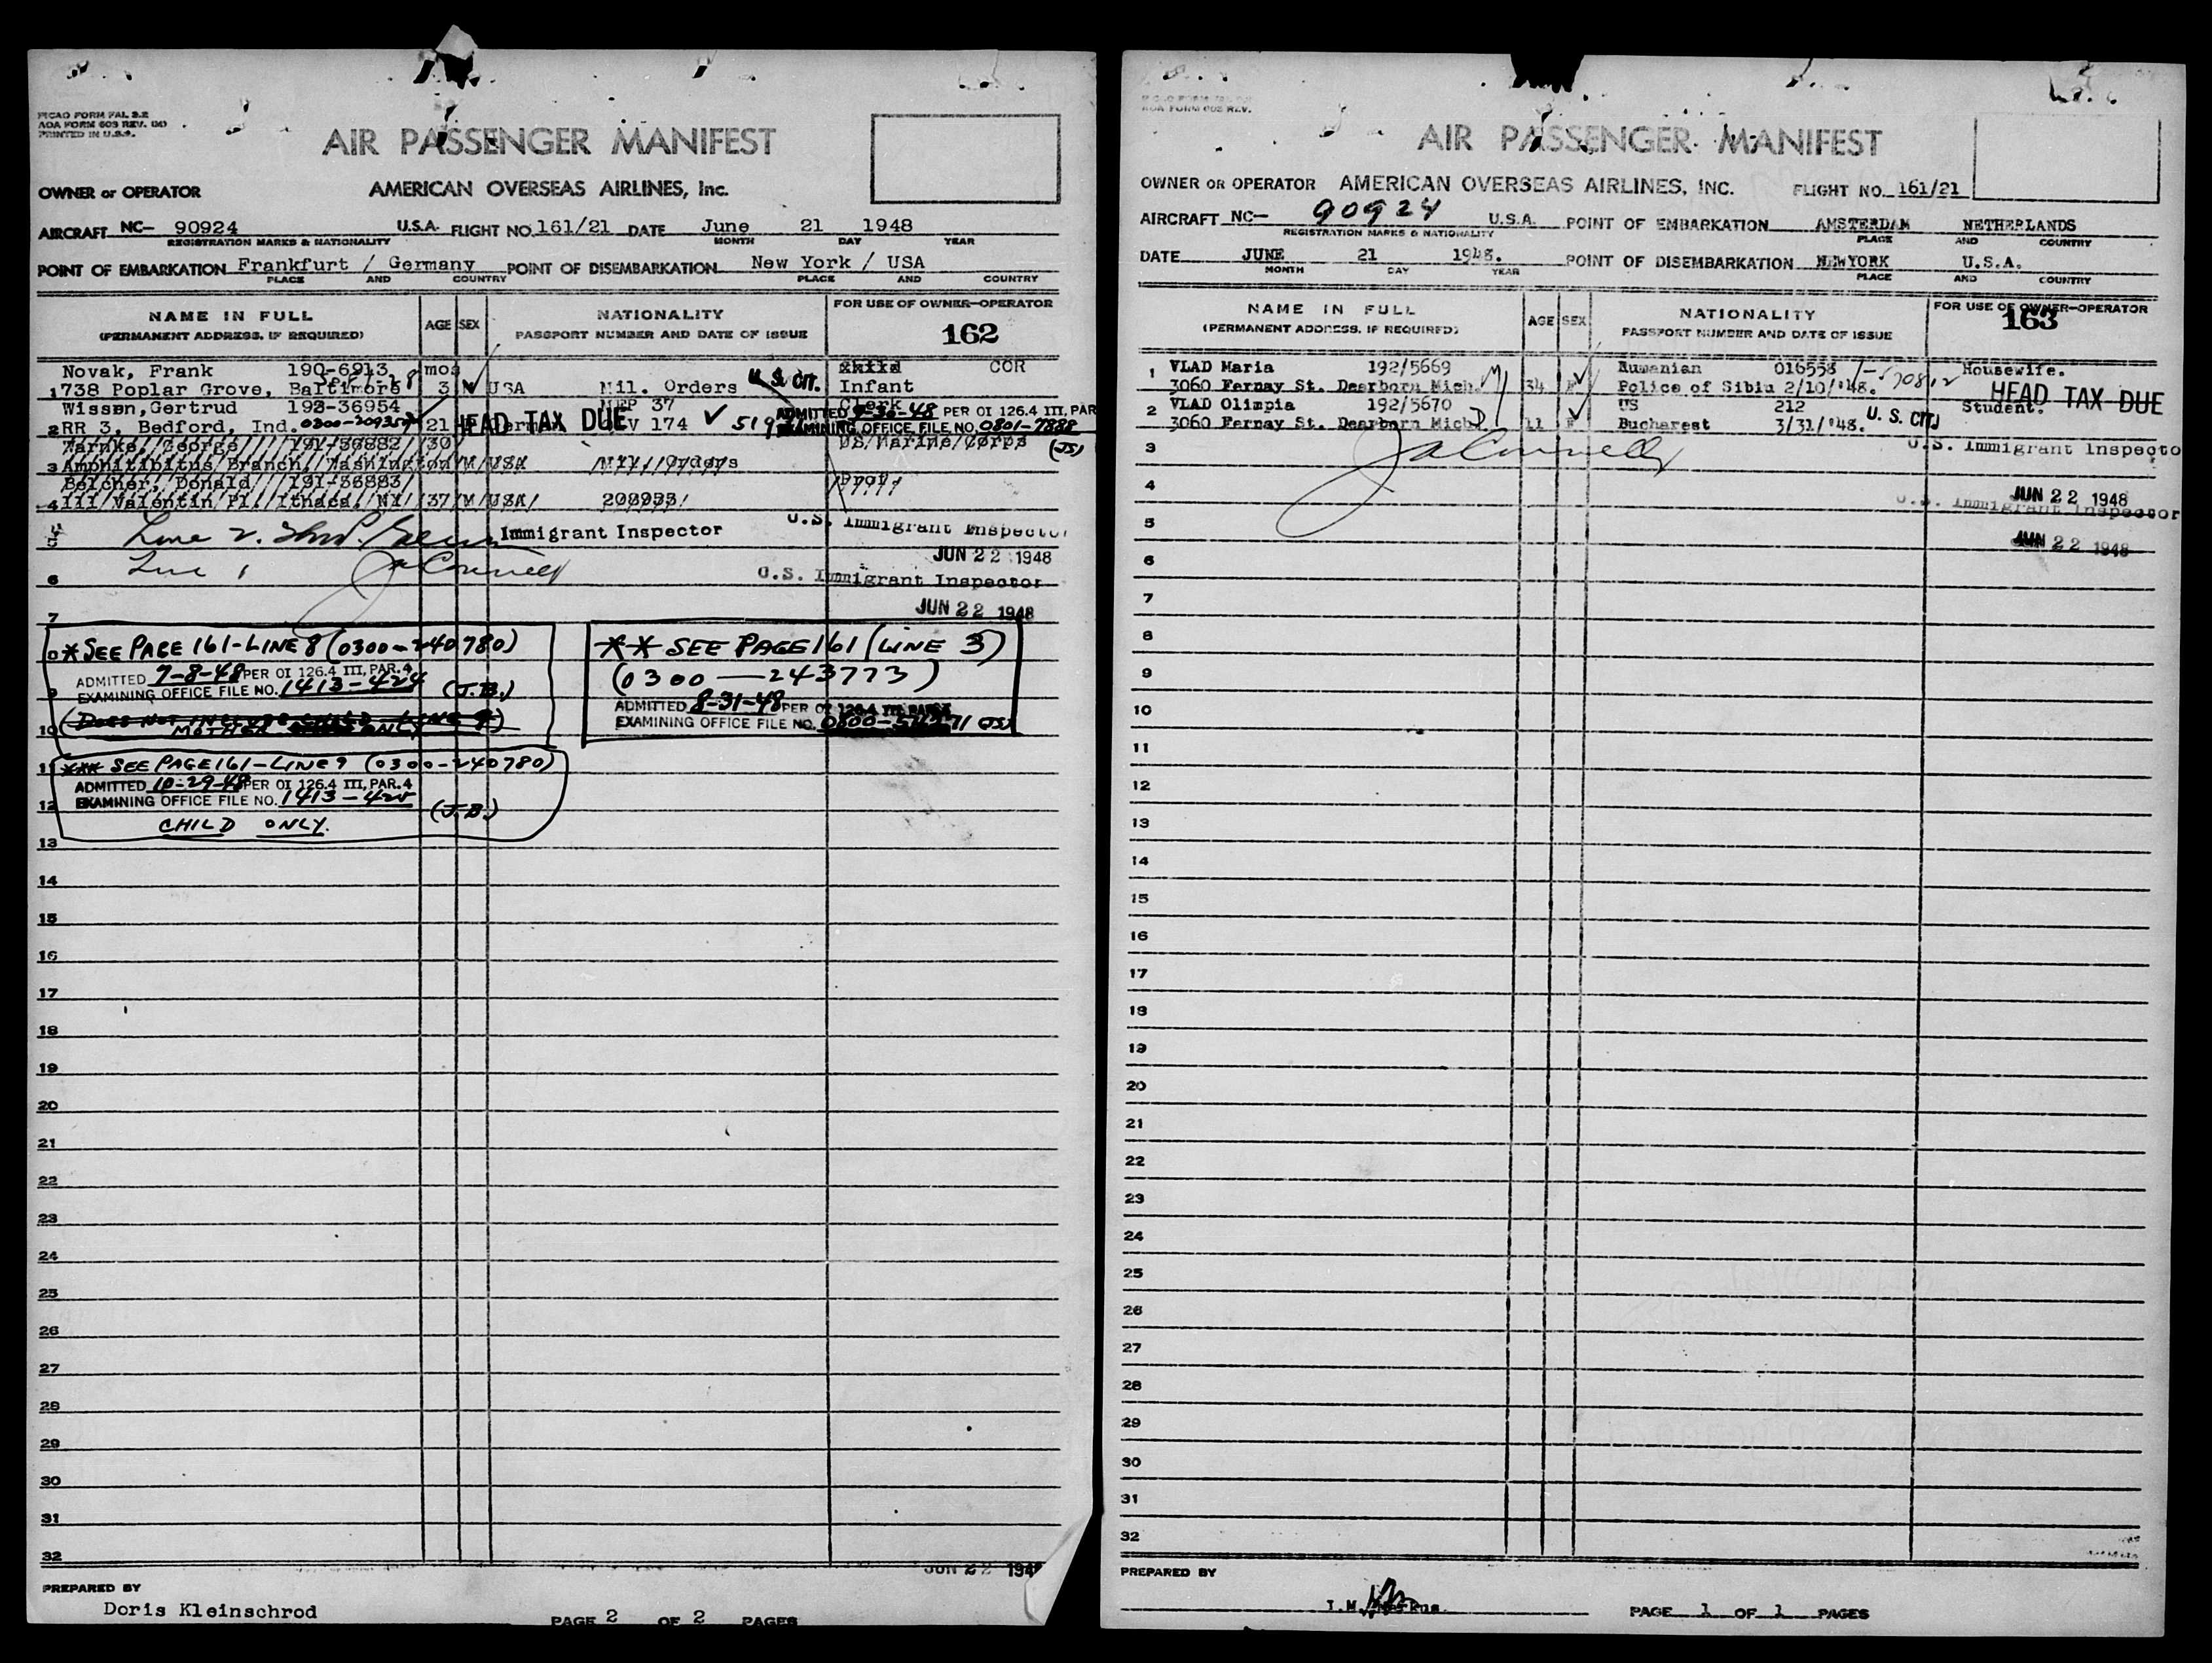 PICAO FORM FAL 2.2
AOA FORM 603 REV.
PRINTED IN U.S.A.
AIR PASSENGER MANIFEST
OWNER or OPERATOR AMERICAN OVERSEAS AIRLINES, Inc.
AIRCRAFT NC— 90924 U.S.A. FLIGHT NO. 161/21 DATE June 21 1948
REGISTRATION MARKS & NATIONALITY MONTH DAY YEAR
POINT OF EMBARKATION Frankfurt / Germany POINT OF DISEMBARKATION New York / USA
PLACE AND COUNTRY PLACE AND COUNTRY
NAME IN FULL AGE SEX NATIONALITY FOR USE OF OWNER—OPERATOR
(PERMANENT ADDRESS, IF REQUIRED) PASSPORT NUMBER AND DATE OF ISSUE 162
Novak, Frank 190-6913 mos Child COR
1 738 Poplar Grove, Baltimore 3 M USA Mil. Orders U.S. CIT. Infant
Wissen, Gertrud 193-36954 37 Clerk ADMITTED 9-30-48 PER OI 126.4 III, PAR
2 RR 3, Bedford, Ind. 21 HEAD TAX DUE 174 EXAMINING OFFICE FILE NO. 0801-7888
Warnke, George 191-36882 30 US Marine Corps (JS)
3 Branch, Washington M USA Mil. Orders
Belcher, Donald 191-36883 Prof
4 111 Valentin Pl. Ithaca, NY 37 M USA
5 Line 2. Immigrant Inspector U.S. Immigrant Inspector
JUN 22 1948
6 Line 1 JaConnell U.S. Immigrant Inspector
JUN 22 1948
7
8 * SEE PAGE 161-LINE 8 (0300-240780)
ADMITTED 7-8-48 PER OI 126.4 III, PAR. 4
9 EXAMINING OFFICE FILE NO. 1413-424 (J.B.)
(DOES NOT INCLUDE CHILD LINE 9)
10 MOTHER ONLY
** SEE PAGE 161 (LINE 3)
(0300—243773)
ADMITTED 8-31-48 PER OI 126.4 III PAR 4
EXAMINING OFFICE FILE NO.
11 *** SEE PAGE 161-LINE 9 (0300-240780)
ADMITTED 10-29-48 PER OI 126.4 III, PAR. 4
12 EXAMINING OFFICE FILE NO. (J.B.)
CHILD ONLY.
13
14
15
16
17
18
19
20
21
22
23
24
25
26
27
28
29
30
31
32
JUN 22 194
PREPARED BY
Doris Kleinschrod PAGE 2 OF 2 PAGES
AOA FORM 603 REV.
AIR PASSENGER MANIFEST
OWNER OR OPERATOR AMERICAN OVERSEAS AIRLINES, INC. FLIGHT NO. 161/21
AIRCRAFT NC— 90924 U.S.A. POINT OF EMBARKATION AMSTERDAM NETHERLANDS
REGISTRATION MARKS & NATIONALITY PLACE AND COUNTRY
DATE JUNE 21 1948. POINT OF DISEMBARKATION NEWYORK U.S.A.
MONTH DAY YEAR PLACE AND COUNTRY
NAME IN FULL AGE SEX NATIONALITY FOR USE OF OWNER—OPERATOR
(PERMANENT ADDRESS, IF REQUIRED) PASSPORT NUMBER AND DATE OF ISSUE 163
1 VLAD Maria 192/5669 Rumanian 016558 Housewife.
3060 Fernay St. Dearborn Mich. M 34 F Police of Sibiu 2/10/'48. HEAD TAX DUE
2 VLAD Olimpia 192/5670 US 212 Student.
3060 Fernay St. Dearborn Mich. D 11 F Bucharest 3/31/'48. U. S. CIT.
3 JaConnell U.S. Immigrant Inspecto
4 JUN 22 1948
U.S. Immigrant Inspector
5 JUN 22 1948
6
7
8
9
10
11
12
13
14
15
16
17
18
19
20
21
22
23
24
25
26
27
28
29
30
31
32
PREPARED BY
PAGE 1 OF 1 PAGES